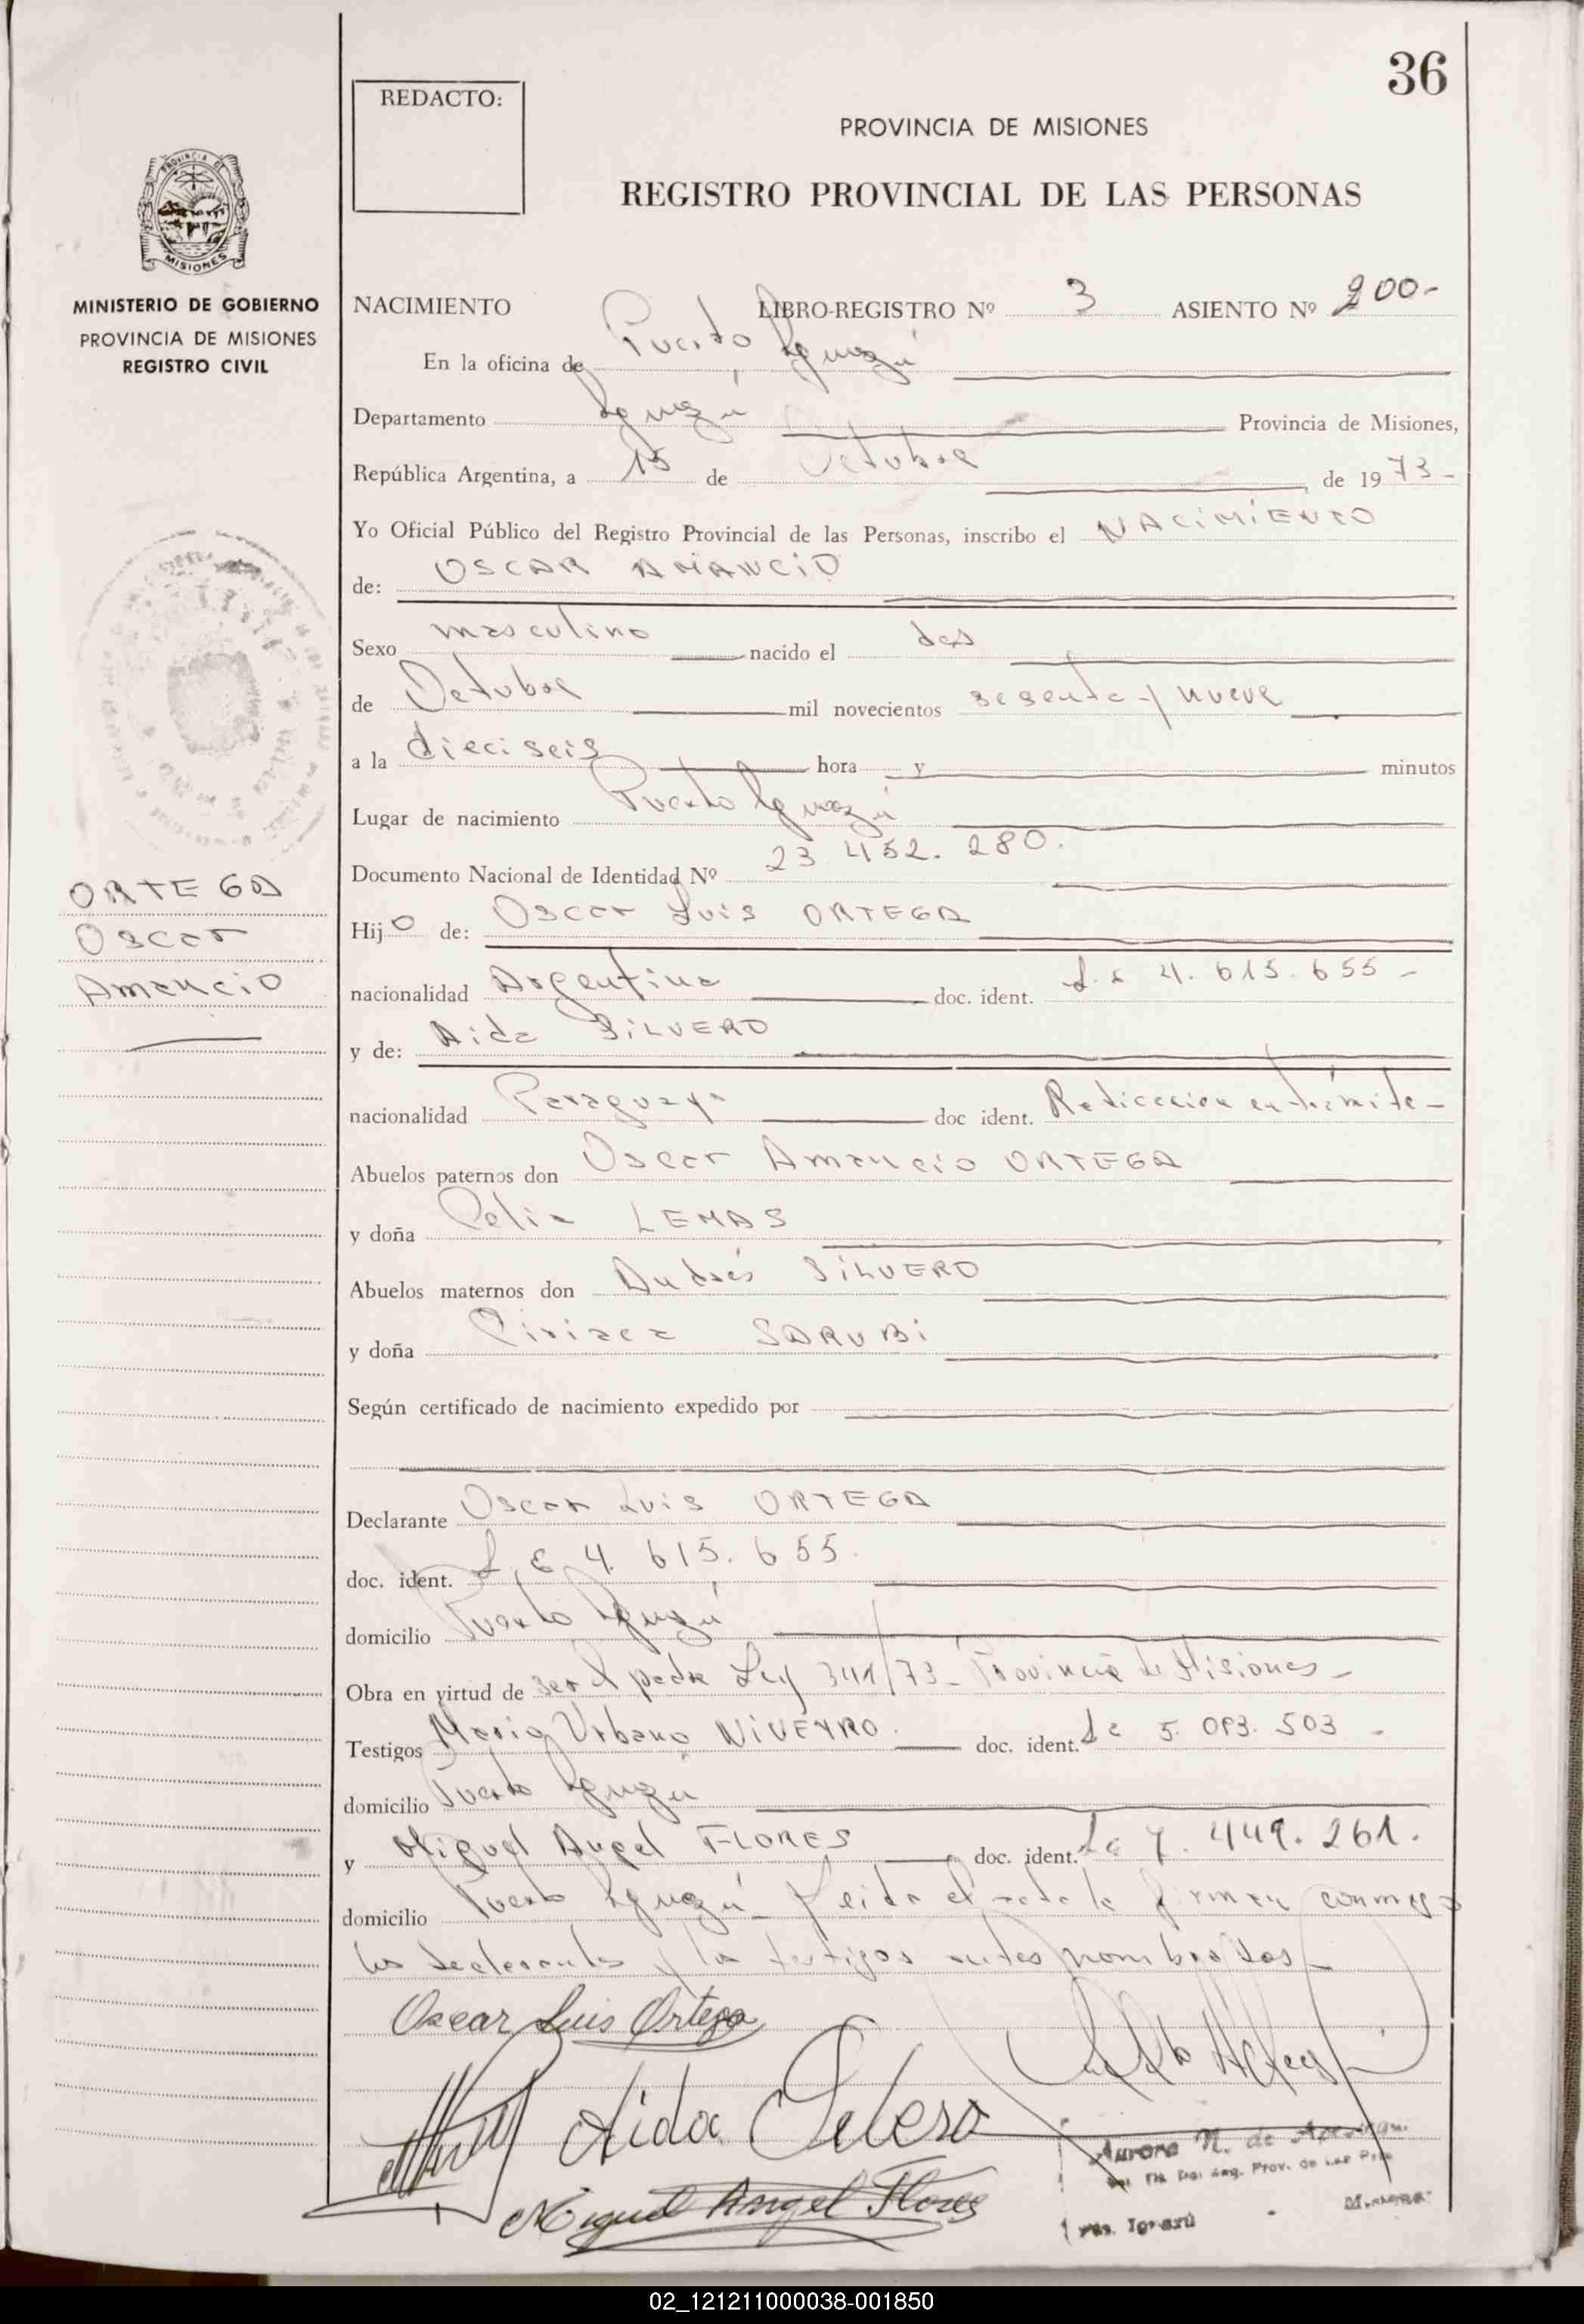 36
REDACTO:
PROVINCIA DE MISIONES
REGISTRO PROVINCIAL DE LAS PERSONAS
PROVINCIA DE
MISIONES
MINISTERIO DE GOBIERNO
PROVINCIA DE MISIONES
REGISTRO CIVIL
NACIMIENTO LIBRO-REGISTRO Nº 3 ASIENTO Nº 200-
En la oficina de Puerto Iguazú
Departamento Iguazú Provincia de Misiones,
República Argentina, a 15 de Octubre de 1973-
Yo Oficial Público del Registro Provincial de las Personas, inscribo el NACIMIENTO
de: OSCAR AMANCIO
Sexo masculino nacido el dos
de Octubre mil novecientos sesenta y nueve
a la dieciseis hora y minutos
Lugar de nacimiento Puerto Iguazú
Documento Nacional de Identidad Nº 23.452.280.
ORTEGA
Oscar
Amancio
Hijo de: Oscar Luis ORTEGA
nacionalidad Argentina doc. ident. L.E 4.615.655-
y de: Aida SILVERO
nacionalidad Paraguaya doc ident. Radicación en trámite-
Abuelos paternos don Oscar Amancio ORTEGA
y doña Celia LEMAS
Abuelos maternos don Andrés SILVERO
y doña Ciriaca SARUBI
Según certificado de nacimiento expedido por
Declarante Oscar Luis ORTEGA
doc. ident. L.E 4.615.655.
domicilio Puerto Iguazú
Obra en virtud de ser el padre Ley 341/73- Provincia de Misiones-
Testigos Mario Urbano NIVEYRO. doc. ident. Le 5.093.503-
domicilio Puerto Iguazú
y Miguel Angel FLORES doc. ident. Le 7.449.261.
domicilio Puerto Iguazú- Leida el acta la firman conmigo
los declarantes y los testigos antes nombrados-
Oscar Luis Ortega
Aida Silvero
Miguel Angel Flores
Aurora N. de
Reg. Prov. de Las
Pto. Iguazú
02_121211000038-001850